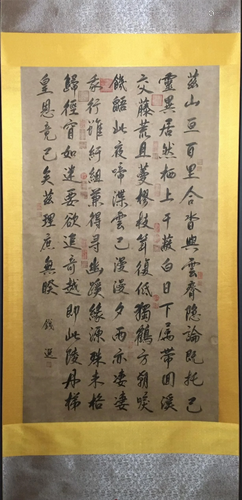 茲山亘百里合沓與雲齊隱淪既托已
靈異居然栖上干蔽白日下属帶回溪
交藤荒且蔓樛枝耸復低獨鶴方朝唳
饑鼯此夜啼渫雲已漫漫夕雨亦凄凄
我行雖紆組兼得尋幽蹊緣源殊未極
歸徑窅如迷要欲追奇趣即此陵丹梯
皇恩竟已矣茲理庶無睽
錢選